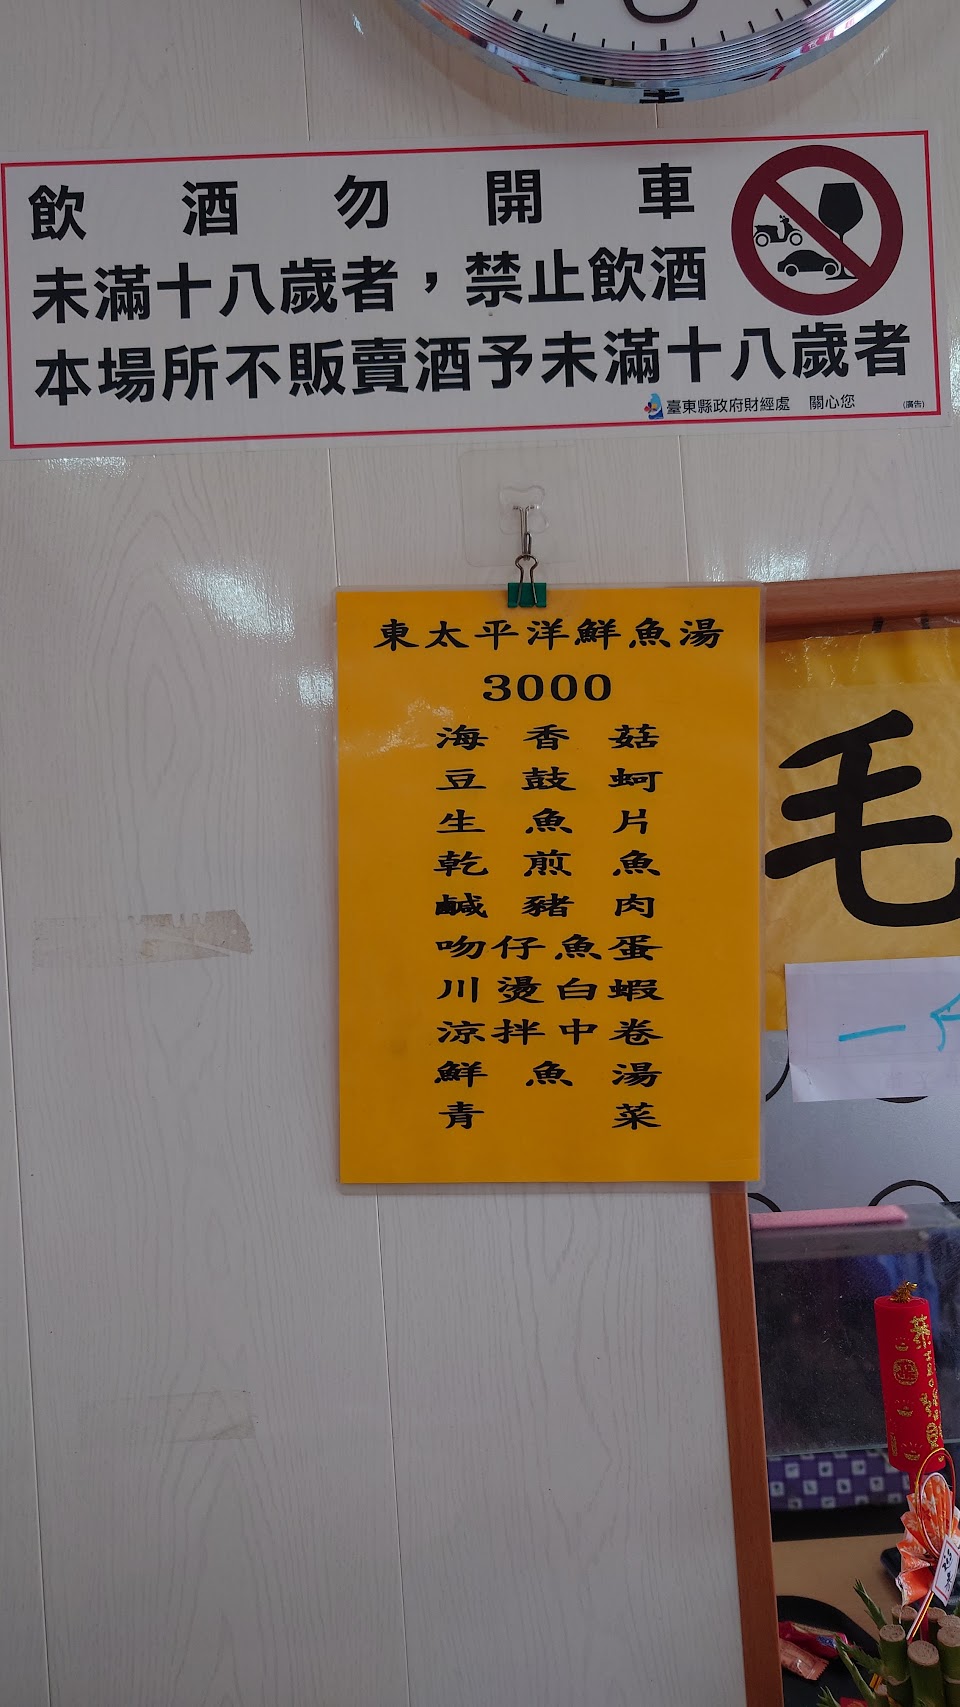 飲酒勿開車
未滿十八歲者，禁止飲酒
本場所不販賣酒予未滿十八歲者
臺東縣政府財經處 關心您 (廣告)
東太平洋鮮魚湯
3000
海香菇
豆鼓蚵
生魚片
乾煎魚
鹹豬肉
吻仔魚蛋
川燙白蝦
涼拌中卷
鮮魚湯
青菜
毛